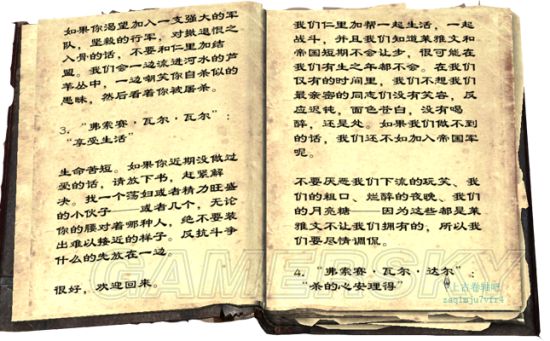 如果你渴望加入一支强大的军
队，坚毅的行军，对撤退恨之
入骨的话，不要和仁里加结
盟。我们会一边流进河水的芦
苇丛中，一边嘲笑你自杀似的
愚昧，然后看着你被屠杀。
3. “弗索赛·瓦尔·瓦尔”：
“享受生活”
生命苦短。如果你近期没做过
爱的话，请放下书，赶紧解
决。找一个荡妇或者精力旺盛
的小伙子——或者几个，无论
你的腰对着哪种人，绝不要装
出难以接近的样子。反抗斗争
什么的先放在一边。
很好，欢迎回来。
我们仁里加帮一起生活，一起
战斗，并且我们知道莱雅文和
帝国短期不会让步，很可能在
我们有生之年都不会。在我们
仅有的时间里，我们不想我们
最亲密的同志们没有笑容，反
应迟钝，面色苍白，没有喝
醉，还是处。如果我们做不到
的话，我们还不如加入帝国军
呢。
不要厌恶我们下流的玩笑、我
们的粗口、烂醉的夜晚、我们
的月亮糖——因为这些都是莱
雅文不让我们拥有的，所以我
们要尽情调侃。
4. “弗索赛·瓦尔·达尔”：
“杀的心安理得”
GAMERSKY
上古卷轴吧